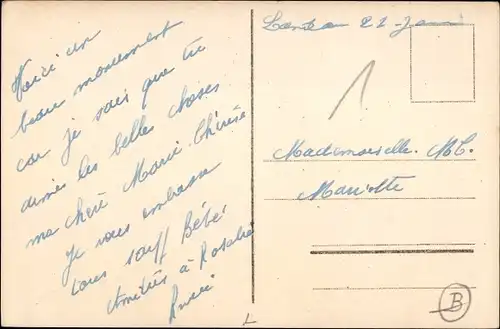 Voici un
beau monument
car je sais que tu
aimes les belles choses
ma chère Marie Thérèse
Je vous embrasse
tous sauf Bébé
Amitiés à Rosalie
Landau 22 Janv
1
Mademoiselle. M.T.
Mariotte
B